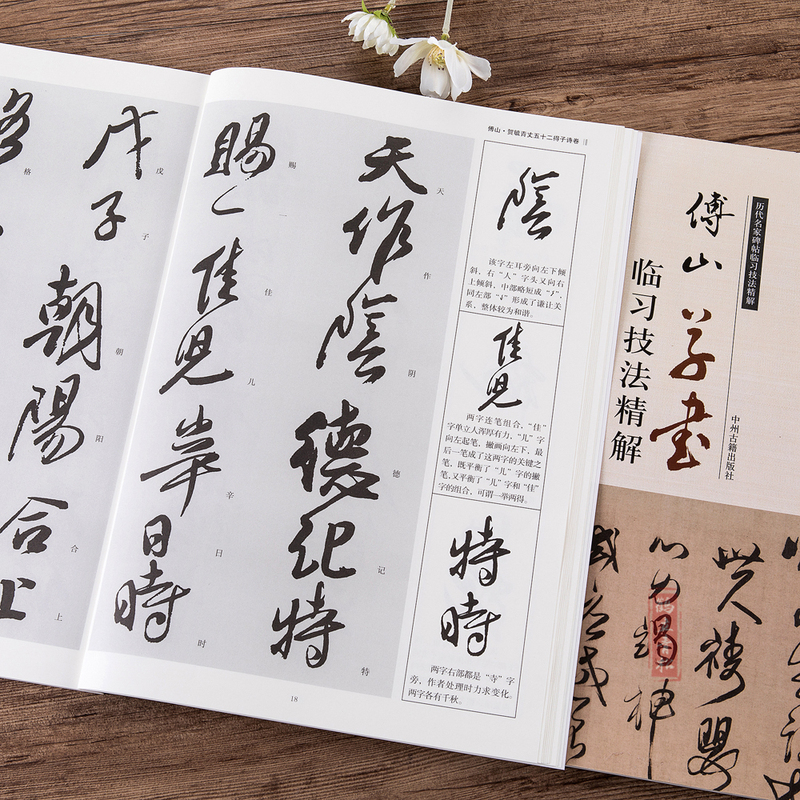 傅山·贺毓青丈五十二得子诗卷
天作陰德记特
天
作
阴
德
记
特
賜一佳児辛日時
赐
一
佳
儿
辛
日
时
戊子朝陽合上
戊
子
朝
阳
合
上
格
格
陰
该字左耳旁向左下倾
斜，右“人”字头又向右
上倾斜，中部略短成
同左部
形成了谦让关
系、整体较为和谐。
佳児
两字连笔组合，“佳”
字单立人浑厚有力，“儿”字
向左起笔，撇画向左下，最
后一笔成了这两字的关键之
笔，既平衡了“儿”字的撇
笔，又平衡了“儿”字和“佳”
字的组合，可谓一举两得。
特時
两字右部都是“寺”字
旁，作者处理时力求变化。
两字各有千秋。
18
历代名家碑帖临习技法精解
傅山草书
临习技法精解
中州古籍出版社